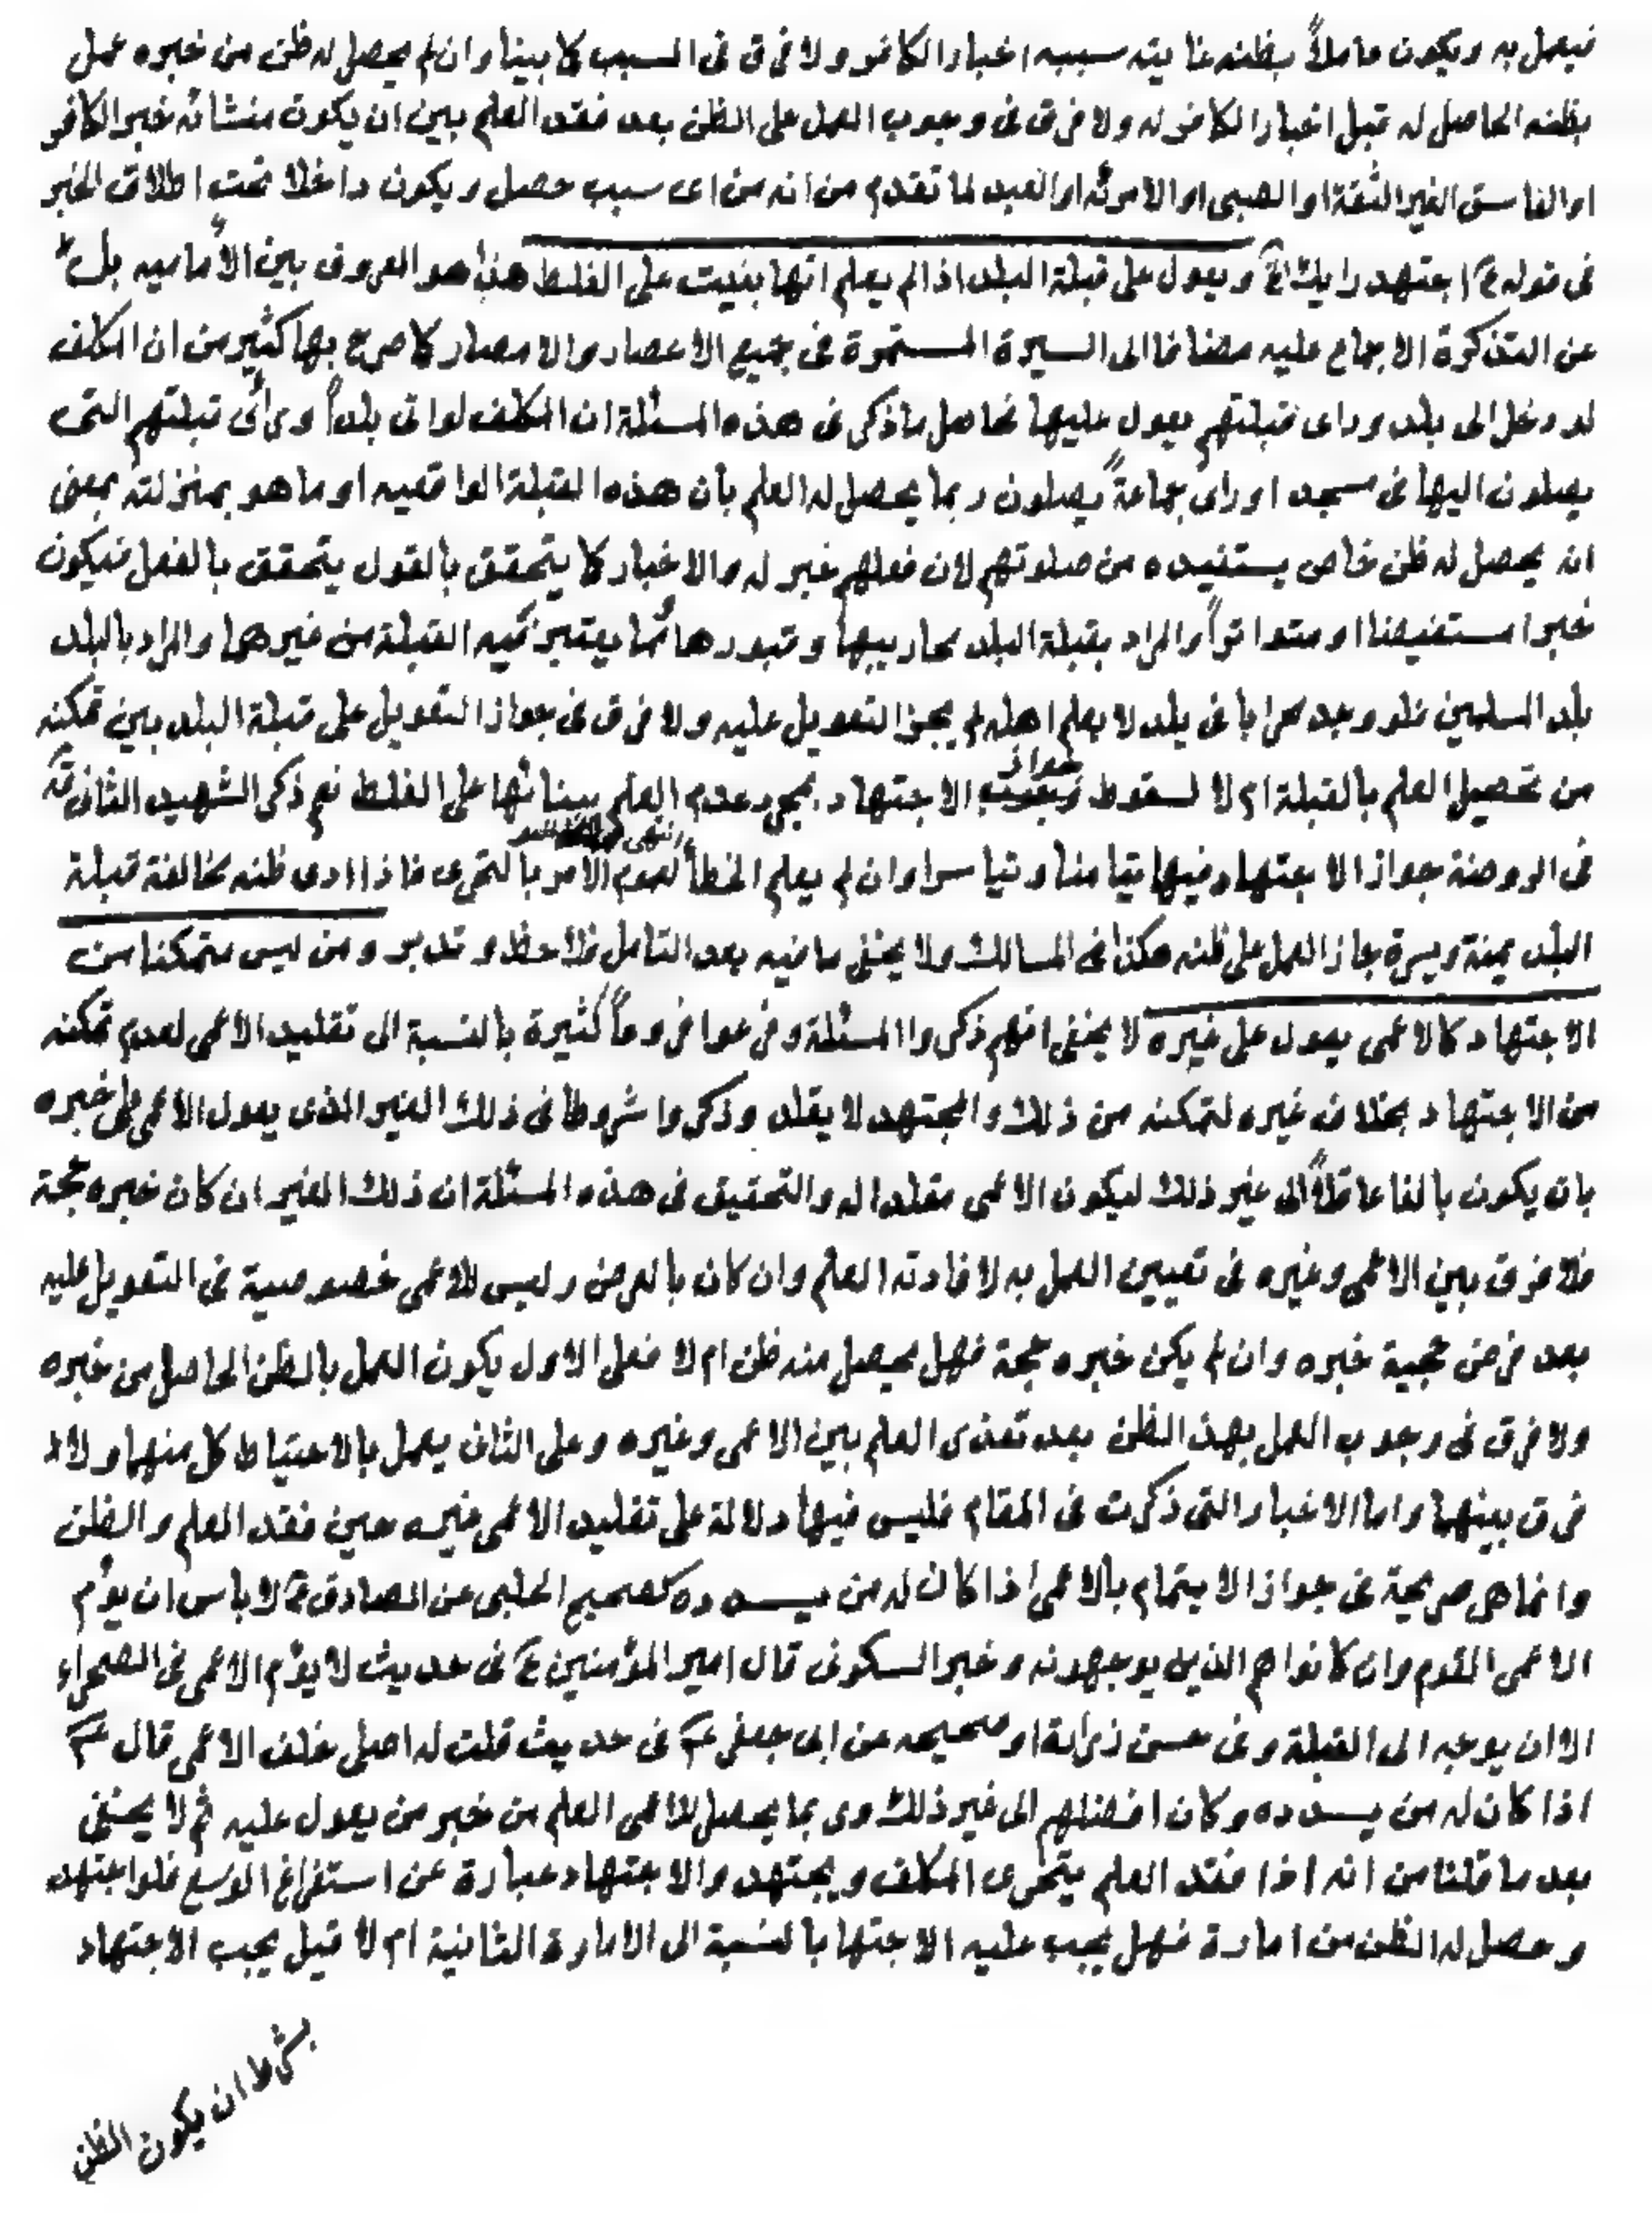 فيعمل به ويكون عاملاً بظنه غايته سببه اخبار الكافر ولا فرق فى السبب كما بينا وان لم يحصل له ظن من خبره عمل
بظنه الحاصل له قبل اخبار الكافر له ولا فرق فى وجوب العمل على الظن بعد فقد العلم بين ان يكون منشائه خبر الكافر
او الفاسق الغير الثقة او الصبى او الامرئه او العبد لما تقدم من انه من اى سبب حصل ويكون داخلا تحت اطلاق الخبر
فى قوله ع اجتهد رايك الخ ويعول على قبلة البلد اذا لم يعلم انها بنيت على الغلط هذا هو المعروف بين الأماميه بل
عن التذكرة الاجماع عليه مضافا الى السيرة المستمرة فى جميع الاعصار والامصار كما صرح بها كثير من ان المكلف
لو دخل الى بلد وراى قبلتهم يعول عليها فحاصل ما ذكر فى هذه المسئلة ان المكلف لو اتى بلداً ورأى قبلتهم التى
يصلون اليها فى مسجد او راى جماعةً يصلون ربما يحصل له العلم بأن هذه القبلة الواقعيه او ما هو بمنزلته بمعنى
انه يحصل له ظن خاص يستفيده من صلوتهم لان فعلهم خبر له والاخبار كما يتحقق بالقول يتحقق بالفعل فيكون
خبرا مستفيضا او متواتراً والمراد بقبلة البلد محاريبها وقبورها مما يعتبر فيه القبلة من غيرهما والمراد بالبلد
بلد المسلمين فلو وجد محرابا فى بلد لا يعلم اهله لم يجز التعويل عليه ولا فرق فى جواز التعويل على قبلة البلد بين تمكنه
من تحصيل العلم بالقبلة ام لا لسقوط جواز الاجتهاد بمجرد عدم العلم ببنائها على الغلط نعم ذكر الشهيد الثانى قد
فى الروضة جواز الاجتهاد فيها تيامنا وتياسرا وان لم يعلم الخطأ لعموم الامر بالتحرى فاذا ادى ظنه مخالفة قبلة
البلد يمنة ويسرة جاز العمل على ظنه هكذا فى المسالك ولا يخفى ما فيه بعد التامل فلاحظ وتدبر ومن ليس متمكنا من
الاجتهاد كالاعمى يعول على غيره لا يخفى انهم ذكروا المسئلة وفرعوا فروعاً كثيرة بالنسبة الى تقليد الاعمى لعدم تمكنه
من الاجتهاد بخلاف غيره لتمكنه من ذلك والمجتهد لا يقلد وذكروا شروطا فى ذلك الغير الذى يعول الاعمى على خبره
بان يكون بالغا عاقلاً الى غير ذلك ليكون الاعمى مقلدا له والتحقيق فى هذه المسئلة ان ذلك الغير ان كان خبره حجة
فلا فرق بين الاعمى وغيره فى تعيين العمل به لافادته العلم وان كان بالعرض وليس للاعمى خصوصية فى التعويل عليه
بعد فرض حجية خبره وان لم يكن خبره حجة فهل يحصل منه ظن ام لا فعلى الاول يكون العمل بالظن الحاصل من خبره
ولا فرق فى وجوب العمل بهذا الظن بعد تعذر العلم بين الاعمى وغيره وعلى الثانى يعمل بالاحتياط كل منهما ولا
فرق بينهما واما الاخبار التى ذكرت فى المقام فليس فيها دلالة على تقليد الاعمى غيره حين فقد العلم والظن
وانما هى صريحة فى جواز الايتمام بالاعمى اذا كان له من يسدده كصحيح الحلبى عن الصادق ع لا باس ان يؤم
الاعمى القوم وان كانوا هم الذين يوجهونه وخبر السكونى قال امير المؤمنين ع فى حديث لا يؤم الاعمى فى الصحراء
الا ان يوجه الى القبلة وفى حسن زرارة او صحيحه عن ابى جعفر ع فى حديث قلت له اصلى خلف الاعمى قال نعم
اذا كان له من يسدده وكان افضلهم الى غير ذلك وربما يحصل للاعمى العلم من خبر من يعول عليه ثم لا يخفى
بعد ما قلنا من انه اذا فقد العلم يتحرى المكلف ويجتهد والاجتهاد عبارة عن استفراغ الوسع فلو اجتهد
وحصل له الظن من امارة فهل يجب عليه الاجتها بالنسبة الى الامارة الثانية ام لا قيل يجب الاجتهاد
بشرط ان يكون الظن